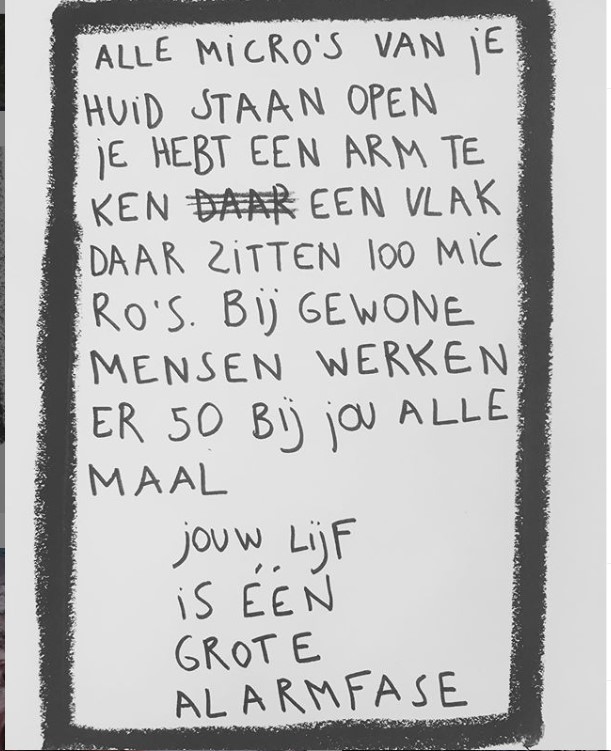 ALLE MiCRO'S VAN jE
HUiD STAAN OPEN
jE HEBT EEN ARM TE
KEN DAAR EEN VLAK
DAAR ZiTTEN 100 MiC
RO'S. Bij GEWONE
MENSEN WERKEN
ER 50 Bij jOU ALLE
MAAL
jOUW LijF
iS ÉÉN
GROTE
ALARMFASE